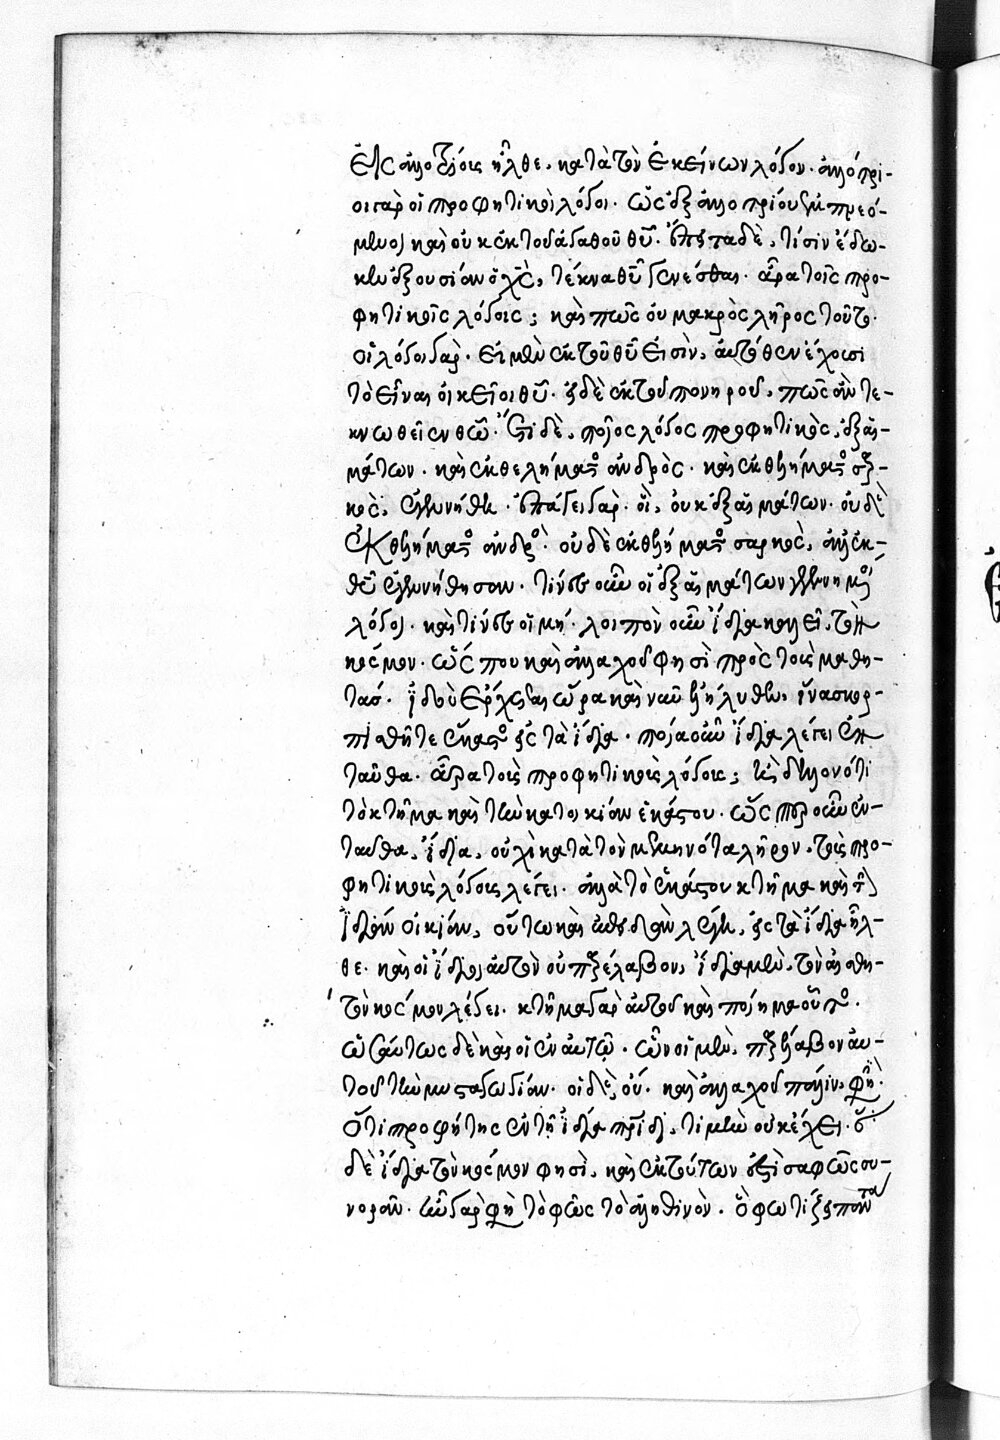 εἰς ἀλλοτρίοις ἦλθε. κατὰ τὸν ἐκείνων λόγον. ἀλλότρι-
οι γὰρ οἱ προφητικοὶ λόγοι. ὡς ἐξ ἀλλοτρίου ἐμπνεό-
μενοι καὶ οὐκ ἐκ τοῦ ἀγαθοῦ θῦ. ἔπειτα δὲ, τίσιν ἔδω-
κεν ἐξουσίαν ὁ χς, τέκνα θῦ γενέσθαι. ἆρα τοῖς προ-
φητικοῖς λόγοις; καὶ πῶς οὐ μακρὸς λῆρος τοῦτο.
οἱ λόγοι γὰρ. εἰ μὲν ἐκ τοῦ θῦ εἰσὶν, αὐτόθεν ἔχουσι
τὸ εἶναι οἰκεῖοι θῦ. εἰ δὲ ἐκ τοῦ πονηροῦ, πῶς ἂν τε-
κνωθεῖεν θῶ. ἔτι δὲ, ποῖος λόγος προφητικὸς, ἐξ αἱ-
μάτων. καὶ ἐκ θελήματος ἀνδρὸς. καὶ ἐκ θελήματος σαρ-
κὸς, ἐγεννήθη. ἐπάγει γὰρ. οἳ, οὐκ ἐξ αἱμάτων. οὐδὲ
ἐκ θελήματος ἀνδρὸς. οὐδὲ ἐκ θελήματος σαρκὸς, ἀλλ' ἐκ
θῦ ἐγεννήθησαν. τίνες οὖν οἱ ἐξ αἱμάτων γεγεννημένοι
λόγοι. καὶ τίνες οἱ μή. λοιπὸν οὖν ἴδια καλεῖ, τὸν
κόσμον. ὥς που καὶ ἀλλαχοῦ φησὶ πρὸς τοὺς μαθη-
τάς. ἰδοὺ ἔρχεται ὥρα καὶ νῦν ἐλήλυθεν, ἵνα σκορ-
πισθῆτε ἕκαστος εἰς τὰ ἴδια. ποῖα οὖν ἴδια λέγει ἐν
ταῦθα. ἆρα τοὺς προφητικοὺς λόγους; ἢ δηλονότι
τὸ κτῆμα καὶ τὴν κατοικίαν ἑκάστου. ὥσπερ οὖν ἐν-
ταῦθα, ἴδια, οὐχὶ κατὰ τὸν μεμηνότα λῆρον, τοὺς προ-
φητικοὺς λόγους λέγει. ἀλλὰ τὸ ἑκάστου κτῆμα καὶ τὴν
ἰδίαν οἰκίαν, οὕτω καὶ ὅταν λέγῃ, εἰς τὰ ἴδια ἦλ-
θε. καὶ οἱ ἴδιοι αὐτὸν οὐ παρέλαβον, ἴδια μὲν, τὸν αἰσθη-
τὸν κόσμον λέγει. κτῆμα γὰρ αὐτοῦ καὶ ποίημα οὗτος.
ὡσαύτως δὲ καὶ οἱ ἐν αὐτῷ. ὧν οἱ μὲν, παρέλαβον αὐ-
τοῦ τὴν μυσταγωγίαν. οἱ δὲ, οὔ. καὶ ἀλλαχοῦ πάλιν, φησὶ.
ὅτι προφήτης ἐν τῇ ἰδίᾳ πρίδι, τιμὴν οὐκ ἔχει. ὅτι
δὲ ἴδια τὸν κόσμον φησὶ, καὶ ἐκ τούτων ἐστὶ σαφῶς συ-
νορᾶν. ἦν γὰρ φησὶ τὸ φῶς τὸ ἀληθινὸν. ὃ φωτίζει πάντα